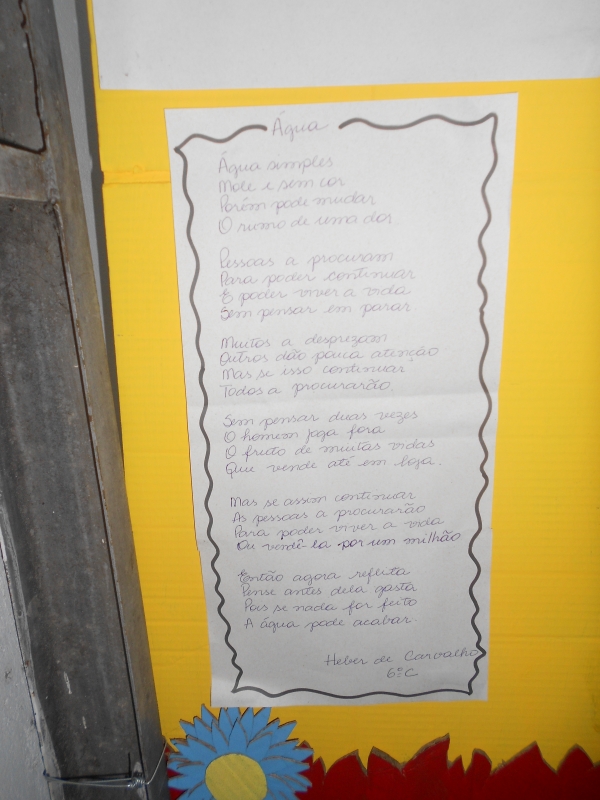 Água
Água simples
Mole e sem cor
Porém pode mudar
O rumo de uma dor
Pessoas a procuram
Para poder continuar
E poder viver a vida
Sem pensar em parar
Muitos a desprezam
Outros dão pouca atenção
Mas se isso continuar
Todos a procurarão.
Sem pensar duas vezes
O homem joga fora
O fruto de muitas vidas
Que vende até em loja.
Mas se assim continuar
As pessoas a procurarão
Para poder viver a vida
Ou vendê-la por um milhão
Então agora reflita
Pense antes dela gasta
Pois se nada for feito
A água pode acabar.
Heber de Carvalho
6ºC